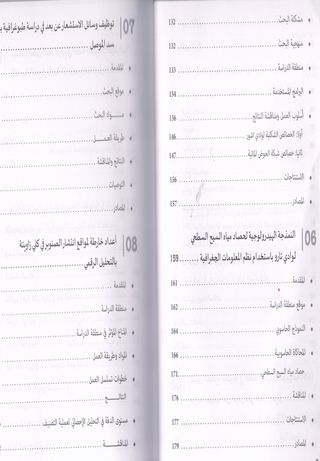 مشكلة البحث 132
منهجية البحث 132
منطقة الدراسة 133
البرامج المستخدمة 134
أسلوب العمل ومناقشة النتائج 136
أولا: الخصائص الشكلية لوادي اشور 146
ثانيا: خصائص شبكة الحوض المائية 147
الاستنتاجات 156
المصادر 157
06 النمذجة الهيدرولوجية لحصاد مياه السيح السطحي
لوادي تارو باستخدام نظم المعلومات الجغرافية 159
المقدمة 161
موقع منطقة الدراسة 162
النموذج الحاسوبي 164
المحاكاة الحاسوبية 166
حصاد مياه السيح السطحي 171
المناقشة 176
الاستنتاجات 177
المصادر 179
07 توظيف وسائل الاستشعار عن بعد في دراسة طبوغرافية
سد الموصل
المقدمة
موقع البحث
مـــواد البحث
طريقة العمـــل
النتائج والمناقشة
التوصيات
المصادر
08 أعداد خارطة لمواقع انتشار الصنوبر في كلي زاويتة
بالتحليل الرقمي
المقدمة
منطقة الدراسة
المناخ المؤثر في منطقة الدراسة
المواد وطريقة العمل
خطوات تسلسل العمل
النتائـــــج
مستوى الدقة في التحليل الإحصائي لعملية التصنيف
المناقشـــة